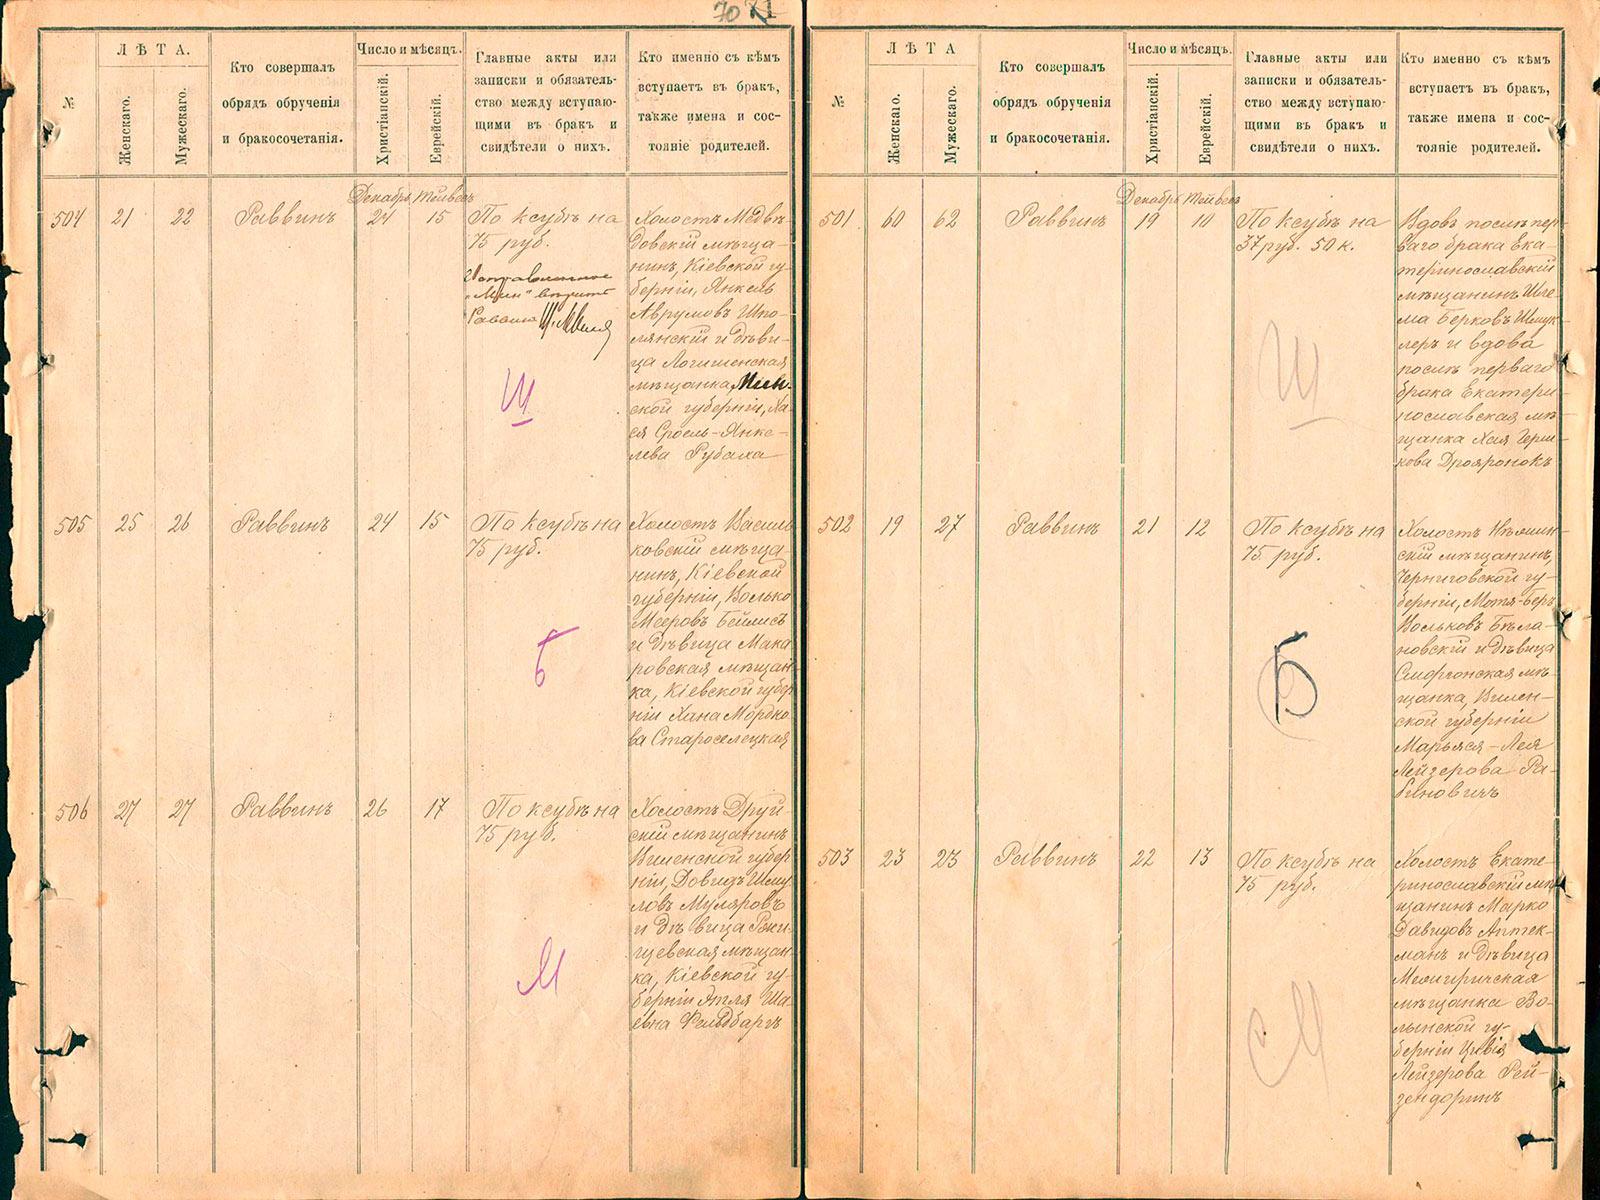 70
№
ЛѢТА.
Женскаго.
Мужескаго.
Кто совершалъ
обрядъ обрученія
и бракосочетанія.
Число и мѣсяцъ.
Христіанскій.
Еврейскій.
Главные акты или
записки и обязатель-
ство между вступаю-
щими въ бракъ и
свидѣтели о нихъ.
Кто именно съ кѣмъ
вступаетъ въ бракъ,
также имена и сос-
тояніе родителей.
Декабрь Тейвесъ
504 21 22 Раввинъ 24 15
По ксубѣ на
75 руб.
Исправленное
„Мин“ вѣрно
Раввинъ
Ш
Холостъ Медвѣ-
довскій мѣща-
нинъ, Кіевской гу-
берніи, Янкель
Аврумовъ Шпо-
лянскій и дѣви-
ца Логишенская
мѣщанка, Мин-
ской губерніи, Ха-
ся Сроель-Янке-
лева Рубаха
505 25 26 Раввинъ 24 15
По ксубѣ на
75 руб.
Б
Холостъ Василь
ковскій мѣща-
нинъ, Кіевской
губерніи, Волько
Мееровъ Бейлисъ
и дѣвица Мака
ровская мѣщан
ка, Кіевской губер
ніи Хана Мордко
ва Староселецкая
506 27 27 Раввинъ 26 17
По ксубѣ на
75 руб.
М
Холостъ Друй-
скій мѣщанинъ
Виленской губер
ніи, Довидъ Шму
ловъ Муляровъ
и дѣвица Ржи-
щевская мѣщан
ка, Кіевской гу-
берніи Этля Ша-
евна Фельдбаргъ
№
ЛѢТА
Женскаго.
Мужескаго.
Кто совершалъ
обрядъ обрученія
и бракосочетанія.
Число и мѣсяцъ.
Христіанскій.
Еврейскій.
Главные акты или
записки и обязатель-
ство между вступаю-
щими въ бракъ и
свидѣтели о нихъ.
Кто именно съ кѣмъ
вступаетъ въ бракъ,
также имена и сос-
тояніе родителей.
Декабрь Тейвесъ
501 60 62 Раввинъ 19 10
По ксубѣ на
37 руб. 50 к.
Ш
Вдовъ послѣ пер-
ваго брака Ека-
теринославскій
мѣщанинъ Шле-
ма Берковъ Шмук
леръ и вдова
послѣ перваго
брака Екатери
нославская мѣ-
щанка Хая Герш-
кова
502 19 27 Раввинъ 21 12
По ксубѣ на
75 руб.
Б
Холостъ Нѣжин-
скій мѣщанинъ,
Черниговской гу-
берніи, Мотя-Беръ
Вольковъ Бѣла-
новскій и дѣвица
Сморгонская мѣ-
щанка, Вилен-
ской губерніи
Марьяся-Лея
Лейзерова Ра-
биновичъ
503 23 23 Раввинъ 22 13
По ксубѣ на
75 руб.
М
Холостъ Екате-
ринославскій мѣ-
щанинъ Марко
Давидовъ Аптек-
манъ и дѣвица
Межиричская
мѣщанка Во-
лынской гу-
берніи Цивія
Лейзерова Рей-
зендорнъ